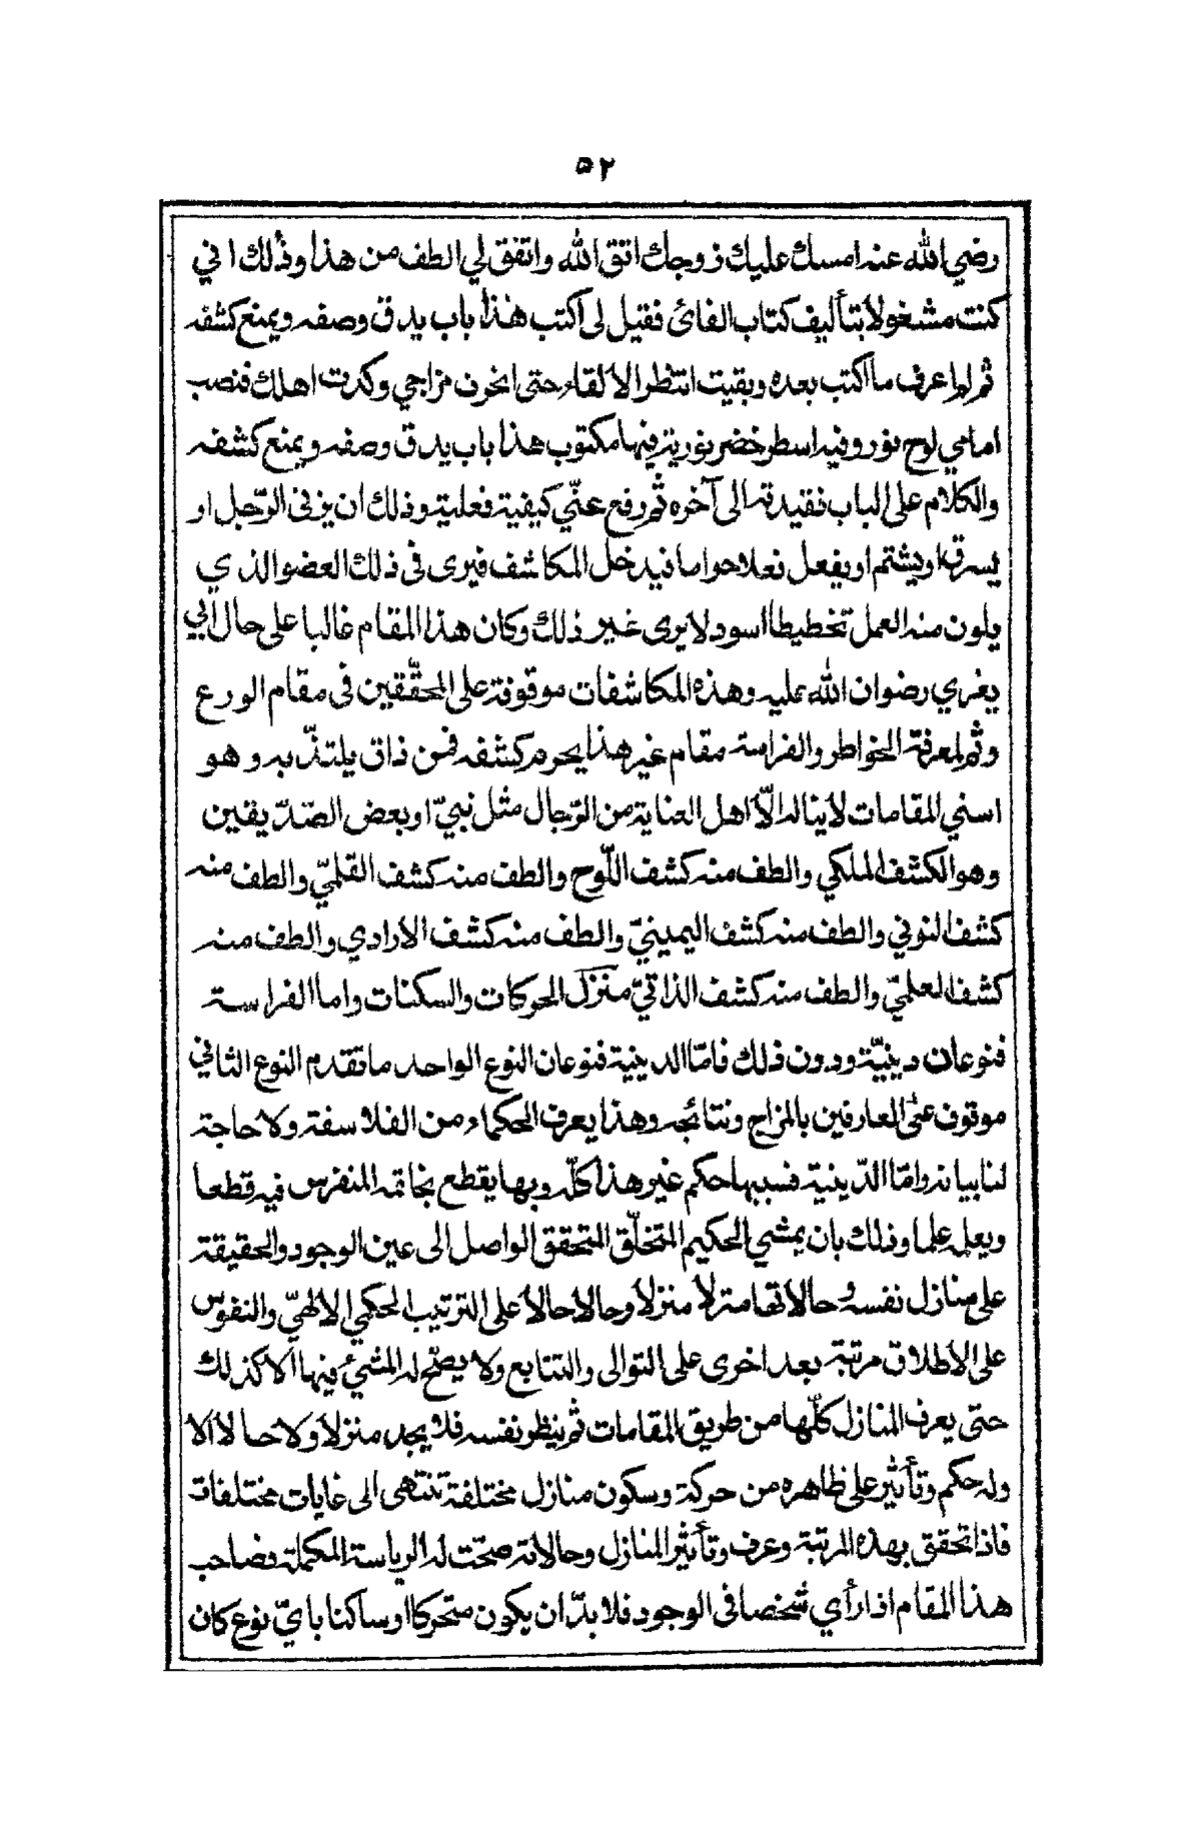 ٥٢
رضي الله عنه امسك عليك زوجك اتق الله واتفق لي الطف من هذا وذلك اني
كنت مشغولا بتأليف كتاب الفائ فقيل لى اكتب هذا باب يدق وصفه ويمنع كشفه
ثم لم اعرف ما اكتب بعده وبقيت انتظر الالقاء حتى انخرن مزاجي وكدت اهلك فنصب
امامي لوح نور وفيه اسطر خضر نورية فيها مكتوب هذا باب يدق وصفه ويمنع كشفه
والكلام على الباب فقيدته الى آخره ثم رفع عنّي كيفية فعلية وذلك ان يزنى الرّجل او
يسرق او يشتم او يفعل فعلا حراما فيدخل المكاشف فيرى فى ذلك العضو الذي
يلون منه العمل تخطيطا اسود لا يرى غير ذلك وكان هذا المقام غالبا على حال ابي
يغري رضوان الله عليه وهذه المكاشفات موقوفة على المحقّقين فى مقام الورع
وثم لمعرفة الخواطر والفراسة مقام غير هذا يحرم كشفه فمن ذاق يلتذّ به وهو
اسني المقامات لا يناله الّا اهل العناية من الرّجال مثل نبيّ او بعض الصّدّيقين
وهو الكشف الملكي والطف منه كشف اللّوح والطف منه كشف القلميّ والطف منه
كشف النوني والطف منه كشف اليمينيّ والطف منه كشف الأرادي والطف منه
كشف العلميّ والطف منه كشف الذاتيّ منزل الحركات والسكنات واما الفراسة
فنوعان دينيّة ودون ذلك فامّا الدينية فنوعان النوع الواحد ما تقدم النوع الثاني
موقوف على العارفين بالمزاج ونتائجه وهذا يعرف الحكماء من الفلاسفة ولا حاجة
لنا ببيانه وامّا الدّينية فسببها حكم غير هذا كلّه وبها يقطع بخاتمة المتفرس فيه قطعا
ويعلمه علما وذلك بان يمشي الحكيم المتخلّق المتحقق الواصل الى عين الوجود والحقيقة
على منازل نفسه وحالاتها منزلاً منزلاً وحالا حالاً على الترتيب الحكمي الالهيّ والنفوس
على الاطلاق مرتبة بعد اخرى على التوالى والتتابع ولا يصّح له المشيئ فيها الا كذلك
حتى يعرف المنازل كلّها من طريق المقامات ثم ينظر نفسه فلا يجد منزلاً ولا حالا الا
وله حكم وتأثير على ظاهره من حركة وسكون منازل مختلفة تنتهى الى غايات مختلفات
فاذا تحقق بهذه المرتبة وعرف وتأثير المنازل وحالاته صحّت له الرياسة المكملة فصاحب
هذا المقام اذا رأي شخصا فى الوجود فلا بدّ ان يكون متحركا او ساكنا بايّ نوع كان